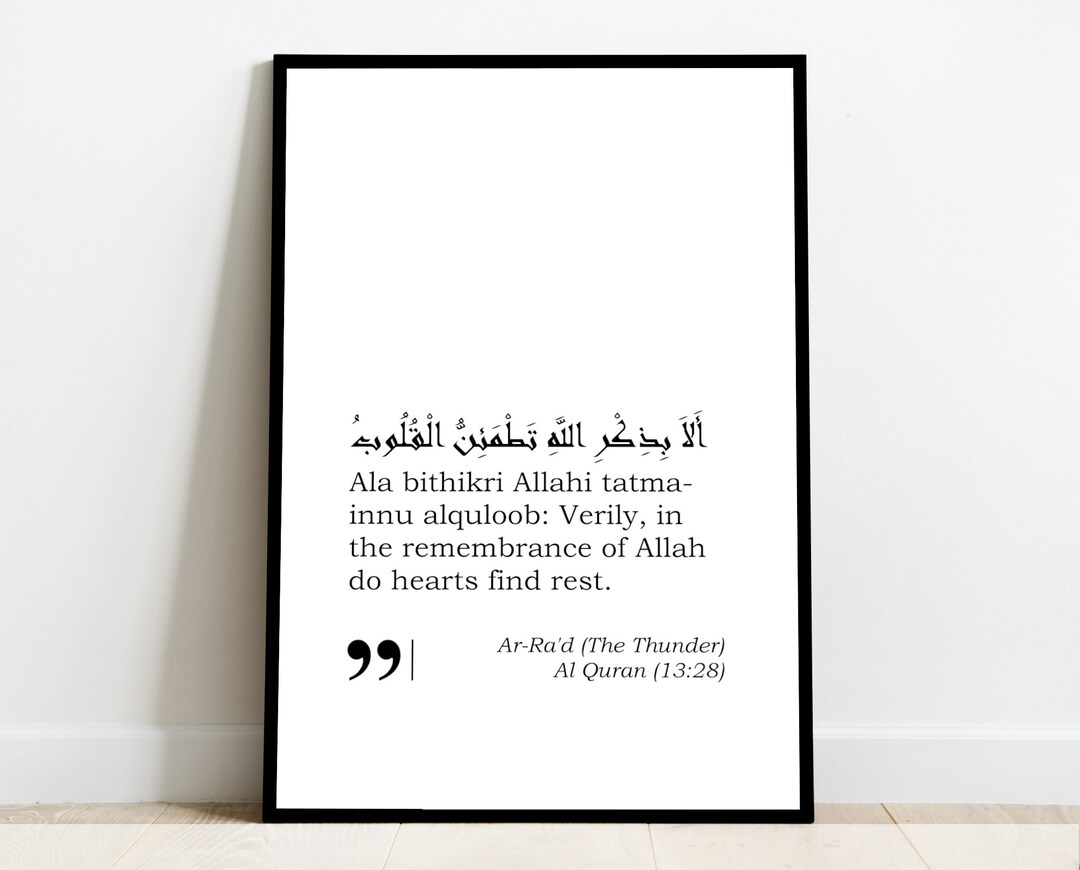 أَلَا بِذِكْرِ اللَّهِ تَطْمَئِنُّ الْقُلُوبُ
Ala bithikri Allahi tatma-
innu alquloob: Verily, in
the remembrance of Allah
do hearts find rest.
❞| Ar-Ra'd (The Thunder)
Al Quran (13:28)